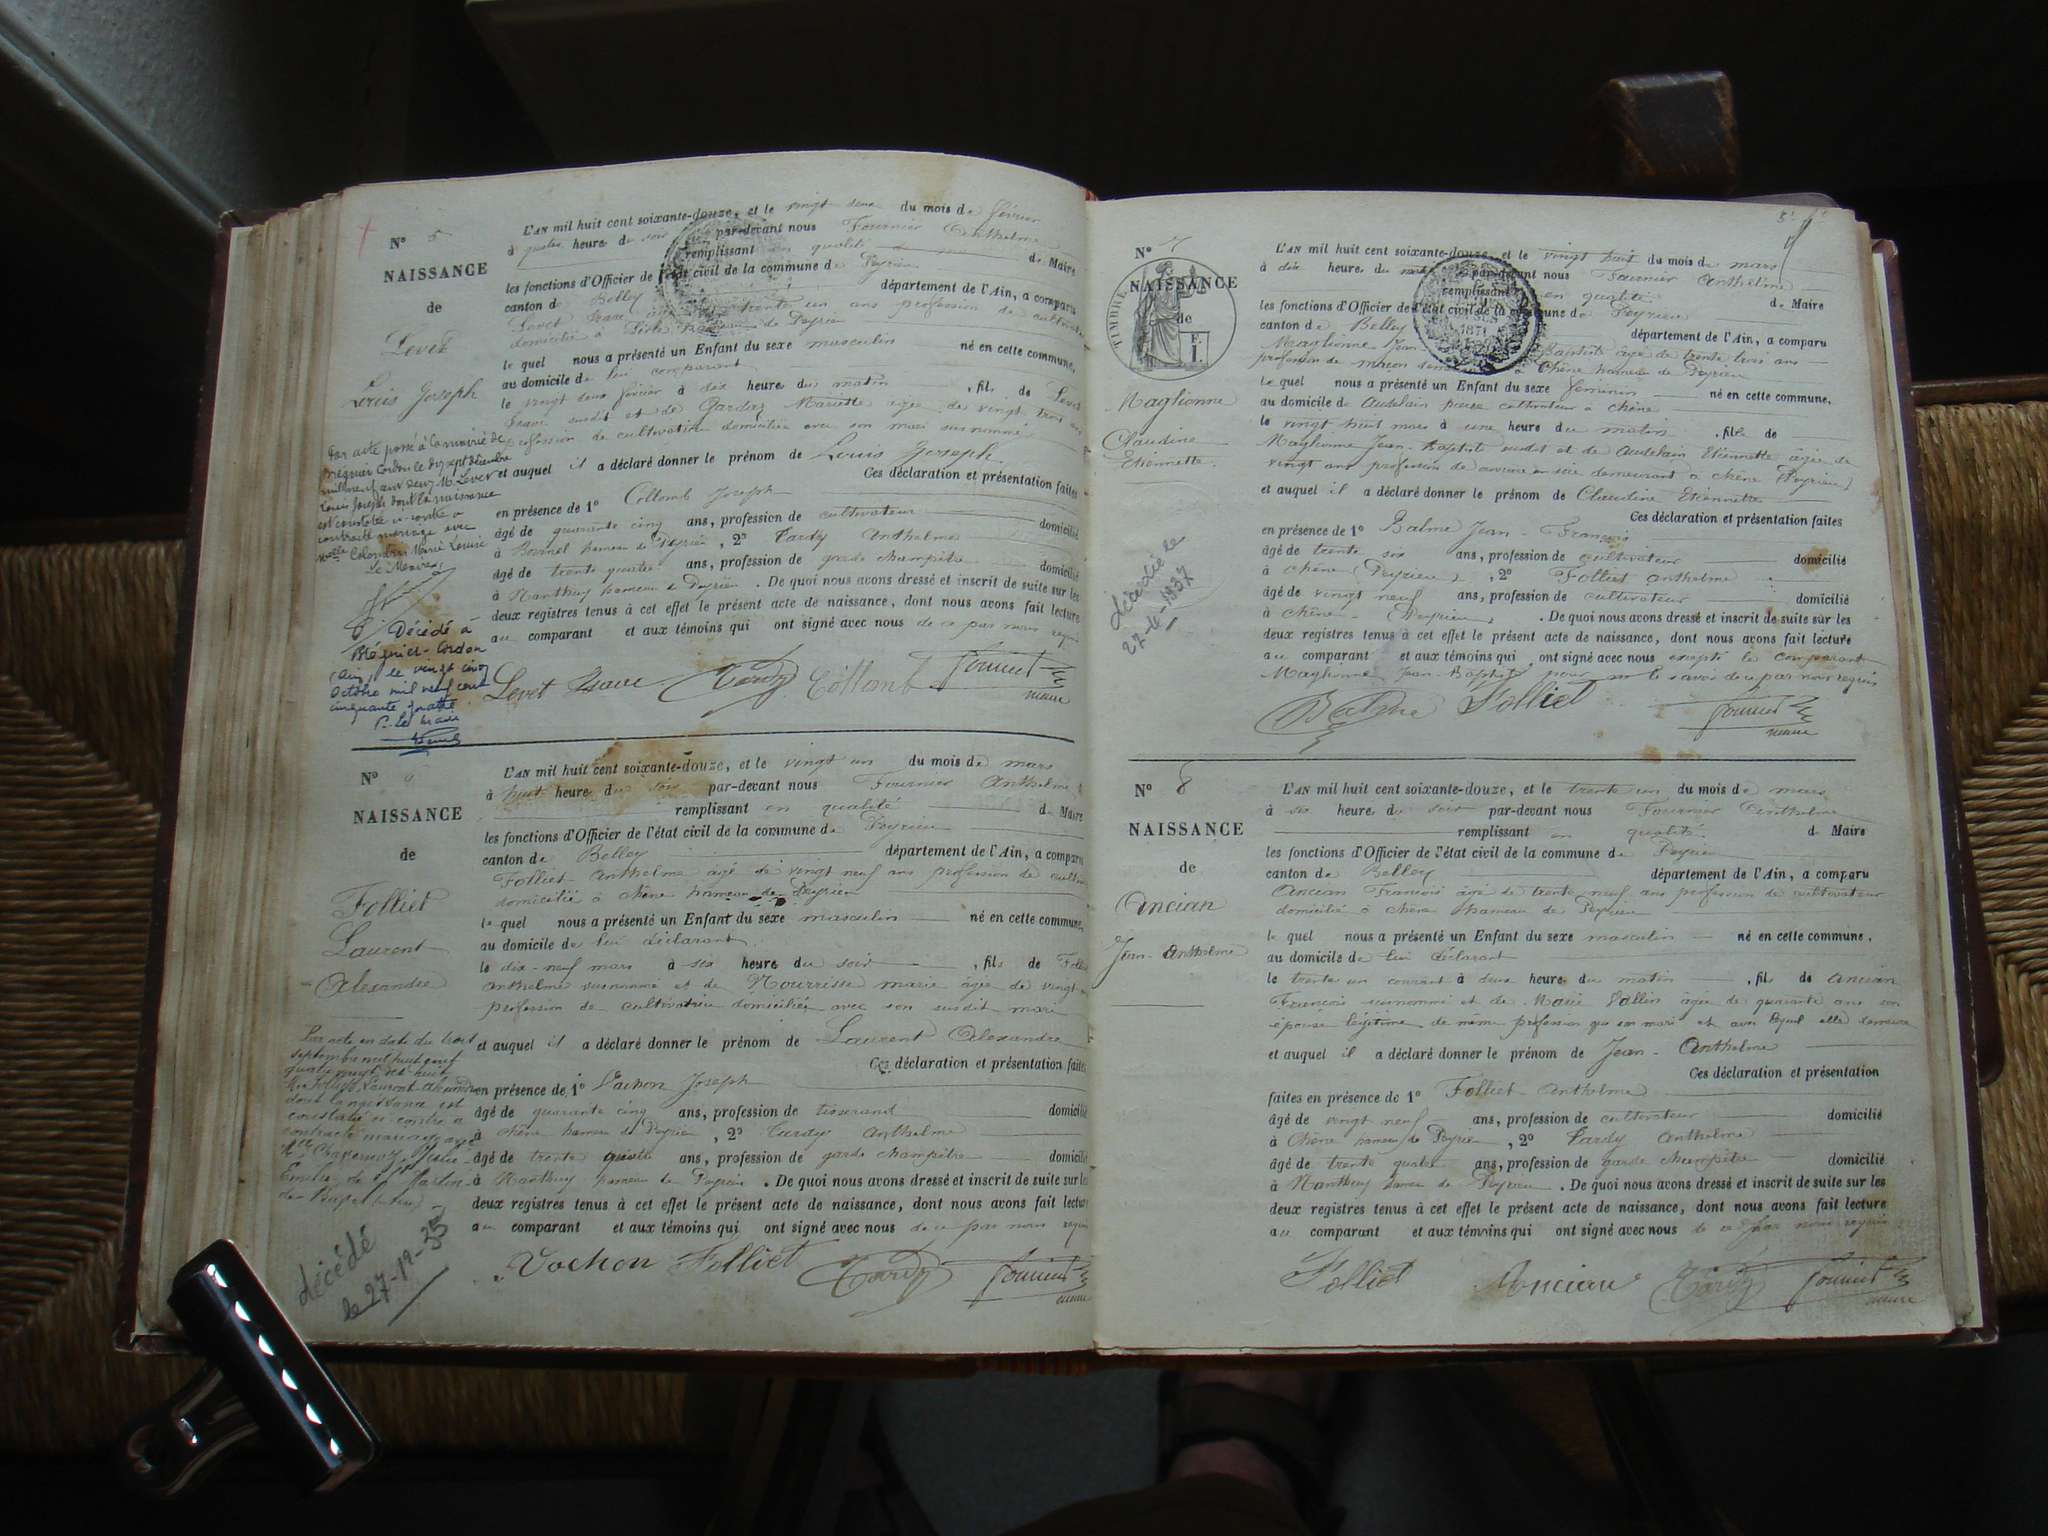 N° 5
NAISSANCE
de
Levet
Louis Joseph
L'AN mil huit cent soixante-douze, et le vingt deux du mois de février
à quatre heure du soir par-devant nous Fournier Anthelme
remplissant en qualité de Maire
les fonctions d'Officier de l'état civil de la commune de Peyrieu
canton de Belley département de l'Ain, a comparu
Levet trente un ans profession de cultivateur
domicilié à hameau de Peyrieu
le quel nous a présenté un Enfant du sexe masculin né en cette commune,
au domicile de lui comparant
le vingt deux février à six heure du matin, fils de Levet
susdit et de Mariette âgée de vingt trois ans
profession de cultivatrice domiciliée avec son mari susnommé
et auquel il a déclaré donner le prénom de Louis Joseph.
Ces déclaration et présentation faites
en présence de 1° Collomb Joseph
âgé de quarante cinq ans, profession de cultivateur domicilié
à hameau de Peyrieu, 2° Tardy Anthelme
âgé de trente quatre ans, profession de garde champêtre domicilié
à Nanthuy hameau de Peyrieu. De quoi nous avons dressé et inscrit de suite sur les
deux registres tenus à cet effet le présent acte de naissance, dont nous avons fait lecture
au comparant et aux témoins qui ont signé avec nous de ce par nous requis
Levet Tardy Collomb Fournier
maire
Par acte passé à la mairie de
Brégnier Cordon le dix sept décembre
mil neuf cent deux M. Levet
Louis Joseph dont la naissance
est constatée ci-contre a
contracté mariage avec
Marie Louise
Le Maire,
Décédé à
Brégnier-Cordon
(Ain) le vingt cinq
Octobre mil neuf cent
cinquante quatre
P. Le Maire
N° 6
NAISSANCE
de
Folliet
Laurent
Alexandre
L'AN mil huit cent soixante-douze, et le vingt un du mois de mars
à huit heure du soir par-devant nous Fournier Anthelme
remplissant en qualité de Maire
les fonctions d'Officier de l'état civil de la commune de Peyrieu
canton de Belley département de l'Ain, a comparu
Folliet Anthelme âgé de vingt neuf ans profession de
domicilié à Chêne hameau de Peyrieu
le quel nous a présenté un Enfant du sexe masculin né en cette commune,
au domicile de lui déclarant
le dix-neuf mars à six heure du soir, fils de
Anthelme susnommé et de marie âgée de vingt
profession de cultivatrice domiciliée avec son susdit mari
et auquel il a déclaré donner le prénom de Laurent Alexandre
Ces déclaration et présentation faites
en présence de 1° Vachon Joseph
âgé de quarante cinq ans, profession de tisserand domicilié
à Chêne hameau de Peyrieu, 2° Tardy Anthelme
âgé de trente quatre ans, profession de garde champêtre domicilié
à Nanthuy hameau de Peyrieu. De quoi nous avons dressé et inscrit de suite sur les
deux registres tenus à cet effet le présent acte de naissance, dont nous avons fait lecture
au comparant et aux témoins qui ont signé avec nous de ce par nous requis
Vachon Folliet Tardy Fournier
maire
Par acte en date du trois
septembre mil huit cent
quatre vingt dix huit
M. Folliet Laurent Alexandre
dont la naissance est
constatée ci-contre a
contracté mariage avec
Emilie de St Martin
de Bavel
décédé
le 27-12-35
N° 7
NAISSANCE
de
TIMBRE
F. 1.
Maglionne
Claudine
Etiennette.
L'AN mil huit cent soixante-douze, et le vingt huit du mois de mars
à dix heure du par-devant nous Fournier Anthelme
remplissant en qualité de Maire
les fonctions d'Officier de l'état civil de la commune de Peyrieu
canton de Belley département de l'Ain, a comparu
1871
Maglionne Jean Baptiste âgé de trente trois ans
profession de maçon à Chêne hameau de Peyrieu
le quel nous a présenté un Enfant du sexe féminin né en cette commune,
au domicile de Audelain cultivateur à Chêne
le vingt huit mars à une heure du matin, fille de
Maglionne Jean Baptiste susdit et de Audelain Etiennette âgée de
vingt ans profession de ouvrière en soie demeurant à Chêne (Peyrieu)
et auquel il a déclaré donner le prénom de Claudine Etiennette
Ces déclaration et présentation faites
en présence de 1° Balme Jean-François
âgé de trente six ans, profession de cultivateur domicilié
à Chêne (Peyrieu), 2° Folliet Anthelme
âgé de vingt neuf ans, profession de cultivateur domicilié
à Chêne Peyrieu. De quoi nous avons dressé et inscrit de suite sur les
deux registres tenus à cet effet le présent acte de naissance, dont nous avons fait lecture
au comparant et aux témoins qui ont signé avec nous excepté le comparant
Maglionne Jean-Baptiste pour ne le savoir de ce par nous requis
Balme Folliet Fournier
maire
décédée le
27-6-1937
N° 8
NAISSANCE
de
Ancian
Jean-Anthelme
L'AN mil huit cent soixante-douze, et le trente un du mois de mars
à six heure du soir par-devant nous Fournier Anthelme
remplissant en qualité de Maire
les fonctions d'Officier de l'état civil de la commune de Peyrieu
canton de Belley département de l'Ain, a comparu
Ancian François âgé de trente neuf ans profession de cultivateur
domicilié à Chêne hameau de Peyrieu
le quel nous a présenté un Enfant du sexe masculin né en cette commune,
au domicile de lui déclarant
le trente un courant à deux heure du matin, fils de Ancian
François susnommé et de Marie Vallin âgée de quarante ans son
épouse légitime de même profession que son mari et avec lequel elle demeure
et auquel il a déclaré donner le prénom de Jean-Anthelme
Ces déclaration et présentation
faites en présence de 1° Folliet Anthelme
âgé de vingt neuf ans, profession de cultivateur domicilié
à Chêne hameau de Peyrieu, 2° Tardy Anthelme
âgé de trente quatre ans, profession de garde champêtre domicilié
à Nanthuy hameau de Peyrieu. De quoi nous avons dressé et inscrit de suite sur les
deux registres tenus à cet effet le présent acte de naissance, dont nous avons fait lecture
au comparant et aux témoins qui ont signé avec nous de ce par nous requis
Folliet Ancian Tardy Fournier
maire